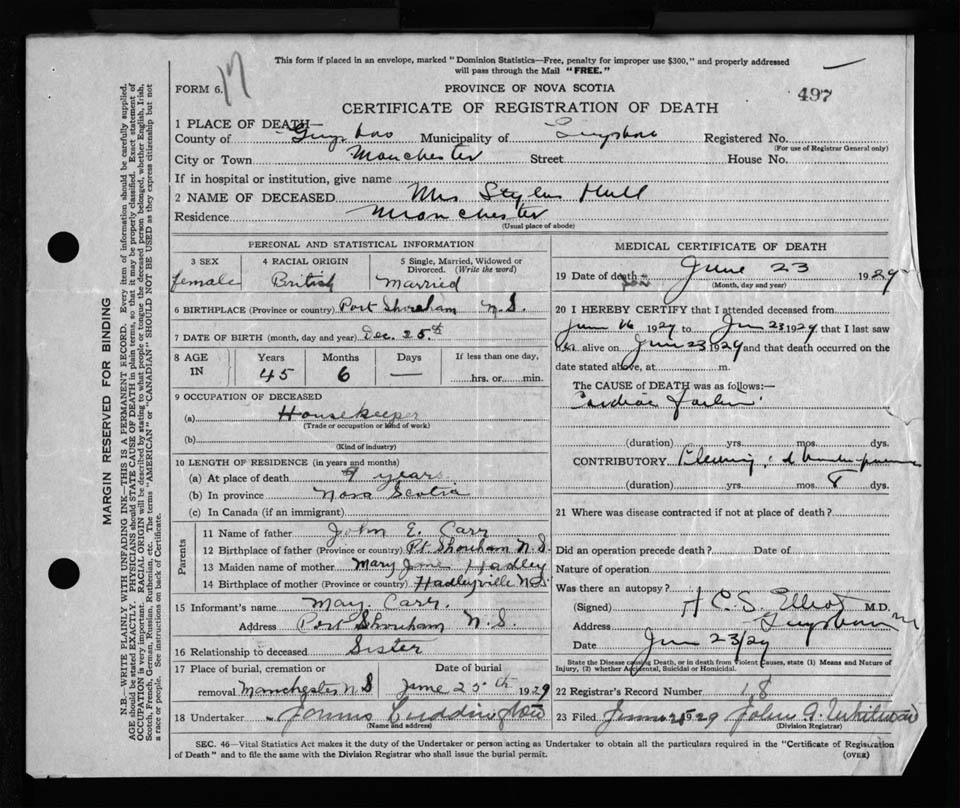 This form if placed in an envelope, marked "Dominion Statistics—Free, penalty for improper use $300," and properly addressed
will pass through the Mail "FREE."
FORM 6. 17
PROVINCE OF NOVA SCOTIA
497
CERTIFICATE OF REGISTRATION OF DEATH
1 PLACE OF DEATH—
County of Guysboro Municipality of Guysboro Registered No.
(For use of Registrar General only)
City or Town Manchester Street House No.
If in hospital or institution, give name
2 NAME OF DECEASED Mrs Hull
Residence Manchester
(Usual place of abode)
PERSONAL AND STATISTICAL INFORMATION
3 SEX 4 RACIAL ORIGIN 5 Single, Married, Widowed or
Divorced. (Write the word)
female British Married
6 BIRTHPLACE (Province or country) Port Shoreham N.S.
7 DATE OF BIRTH (month, day and year) Dec. 25th
8 AGE IN Years Months Days If less than one day,
45 6 — hrs. or min.
9 OCCUPATION OF DECEASED
(a) Housekeeper
(Trade or occupation or kind of work)
(b)
(Kind of industry)
10 LENGTH OF RESIDENCE (in years and months)
(a) At place of death 9 years
(b) In province Nova Scotia
(c) In Canada (if an immigrant)
Parents
11 Name of father John E. Carr
12 Birthplace of father (Province or country) Pt. Shoreham N.S.
13 Maiden name of mother Mary Jane Hadley
14 Birthplace of mother (Province or country) Hadleyville N.S.
15 Informant's name May Carr.
Address Port Shoreham N.S.
16 Relationship to deceased Sister
17 Place of burial, cremation or Date of burial
removal Manchester N.S June 25th 1929
18 Undertaker
(Name and address)
MEDICAL CERTIFICATE OF DEATH
19 Date of death June 23 1929
(Month, day and year)
20 I HEREBY CERTIFY that I attended deceased from
June 16 1929 to Jun 23 1929 that I last saw
her alive on Jun 23 1929 and that death occurred on the
date stated above, at m.
The CAUSE OF DEATH was as follows:—
Cardiac failure
(duration) yrs. mos. dys.
CONTRIBUTORY
(duration) yrs. mos. 8 dys.
21 Where was disease contracted if not at place of death?
Did an operation precede death? Date of
Nature of operation
Was there an autopsy?
(Signed) A C. S. Elliot M.D.
Address Guysboro
Date Jun 23/29
State the Disease causing Death, or in death from Violent Causes, state (1) Means and Nature of
Injury, (2) whether Accidental, Suicidal or Homicidal.
22 Registrar's Record Number 18
23 Filed June 25 1929 John A. Whitman
(Division Registrar)
SEC. 46—Vital Statistics Act makes it the duty of the Undertaker or person acting as Undertaker to obtain all the particulars required in the "Certificate of Registration
of Death" and to file the same with the Division Registrar who shall issue the burial permit. (OVER)
MARGIN RESERVED FOR BINDING
N.B.—WRITE PLAINLY WITH UNFADING INK—THIS IS A PERMANENT RECORD. Every item of information should be carefully supplied.
AGE should be stated EXACTLY. PHYSICIANS should STATE CAUSE OF DEATH in plain terms, so that it may be properly classified. Exact statement of
OCCUPATION is very important. RACIAL ORIGIN will be described by stating to what people or tongue the deceased person belonged, whether English, Irish,
Scotch, French, German, Russian, Ruthenian, etc. The terms "AMERICAN" or "CANADIAN" SHOULD NOT BE USED as they express citizenship but not
a race or people. See instructions on back of Certificate.